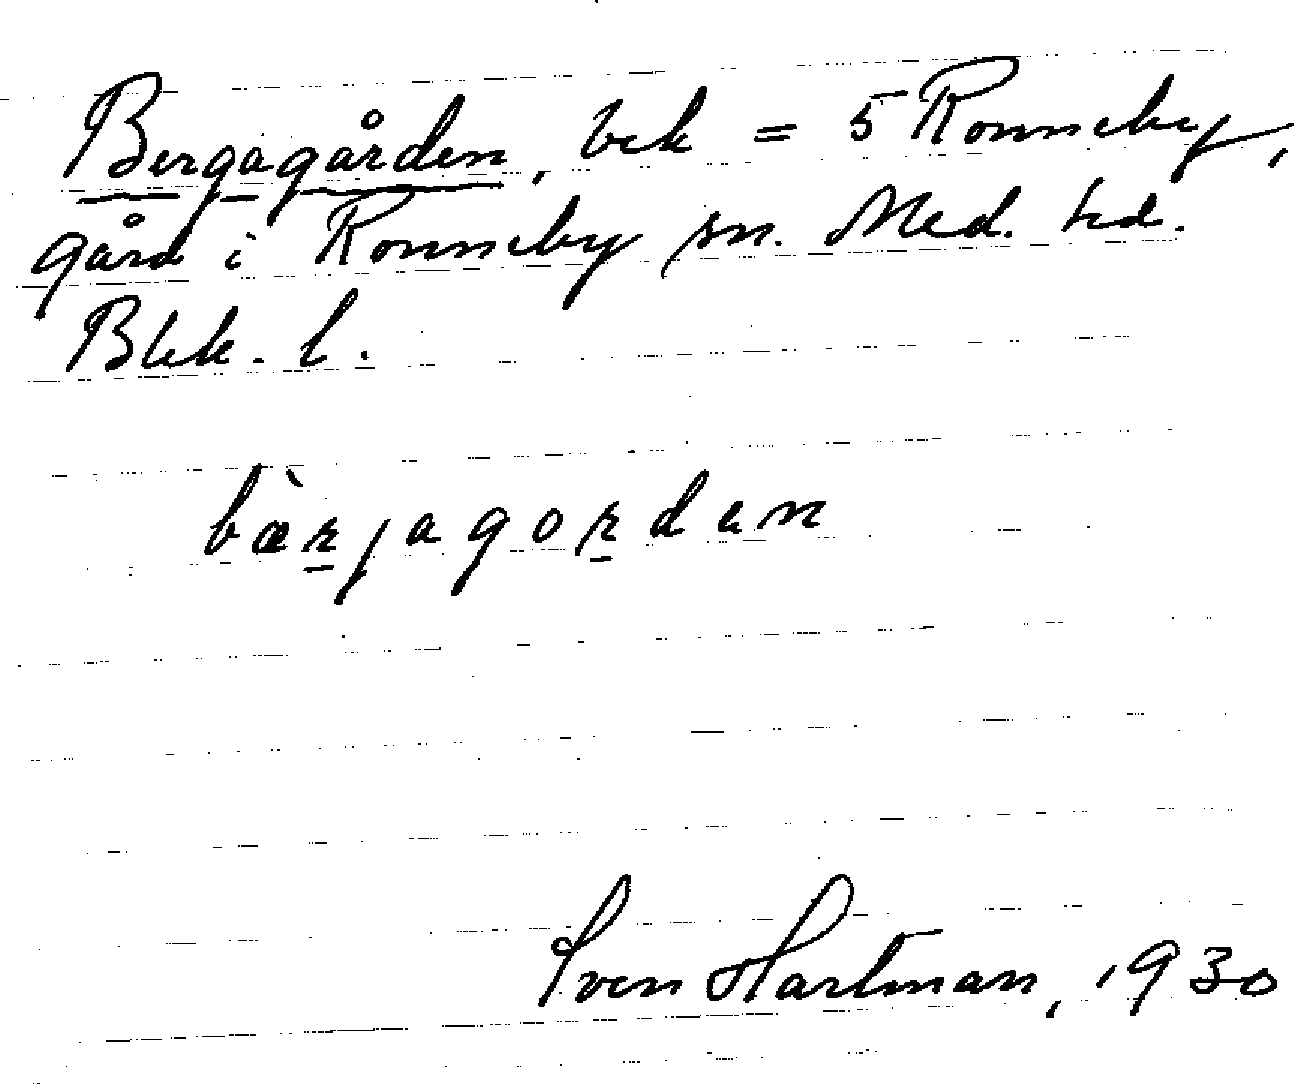 Bergagården, bek = 5 Ronneby,
gård i Ronneby sn. Med. hd.
Blek. l.
bæ̀rjagorden
Sven Hartman, 1930